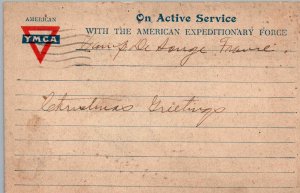 AMERICAN
YMCA
On Active Service
WITH THE AMERICAN EXPEDITIONARY FORCE
Camp De Songe France.
Christmas Greetings